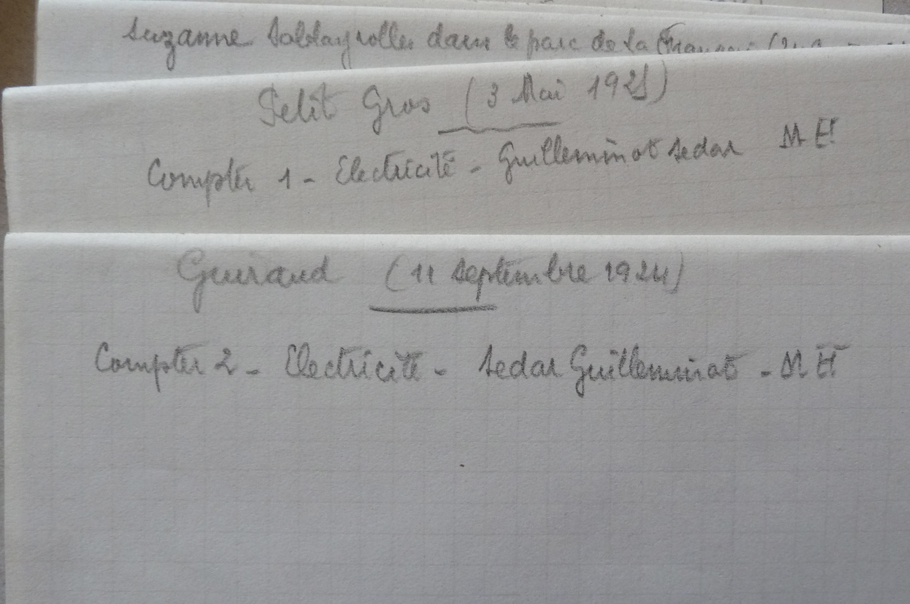 Suzanne Sablayrolles dans le parc de la
Petit Gros (3 Mai 1925)
Compter 1 - Electricité - Guilleminot sedar M H
Guiraud (11 septembre 1924)
Compter 2 - Electricité - sedar Guilleminot - M H